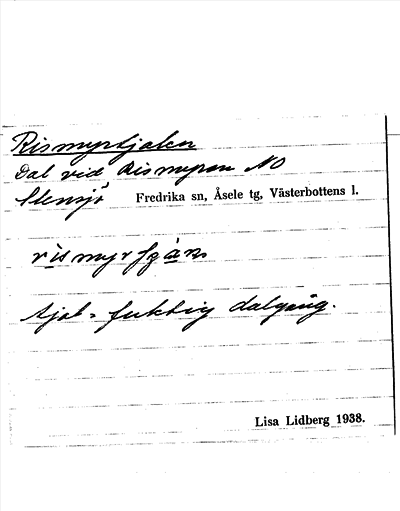 Rismyrtjalen
Dal vid Rismyren NO
Stensjö Fredrika sn, Åsele tg, Västerbottens l.
tjal = fuktig dalgång.
Lisa Lidberg 1938.